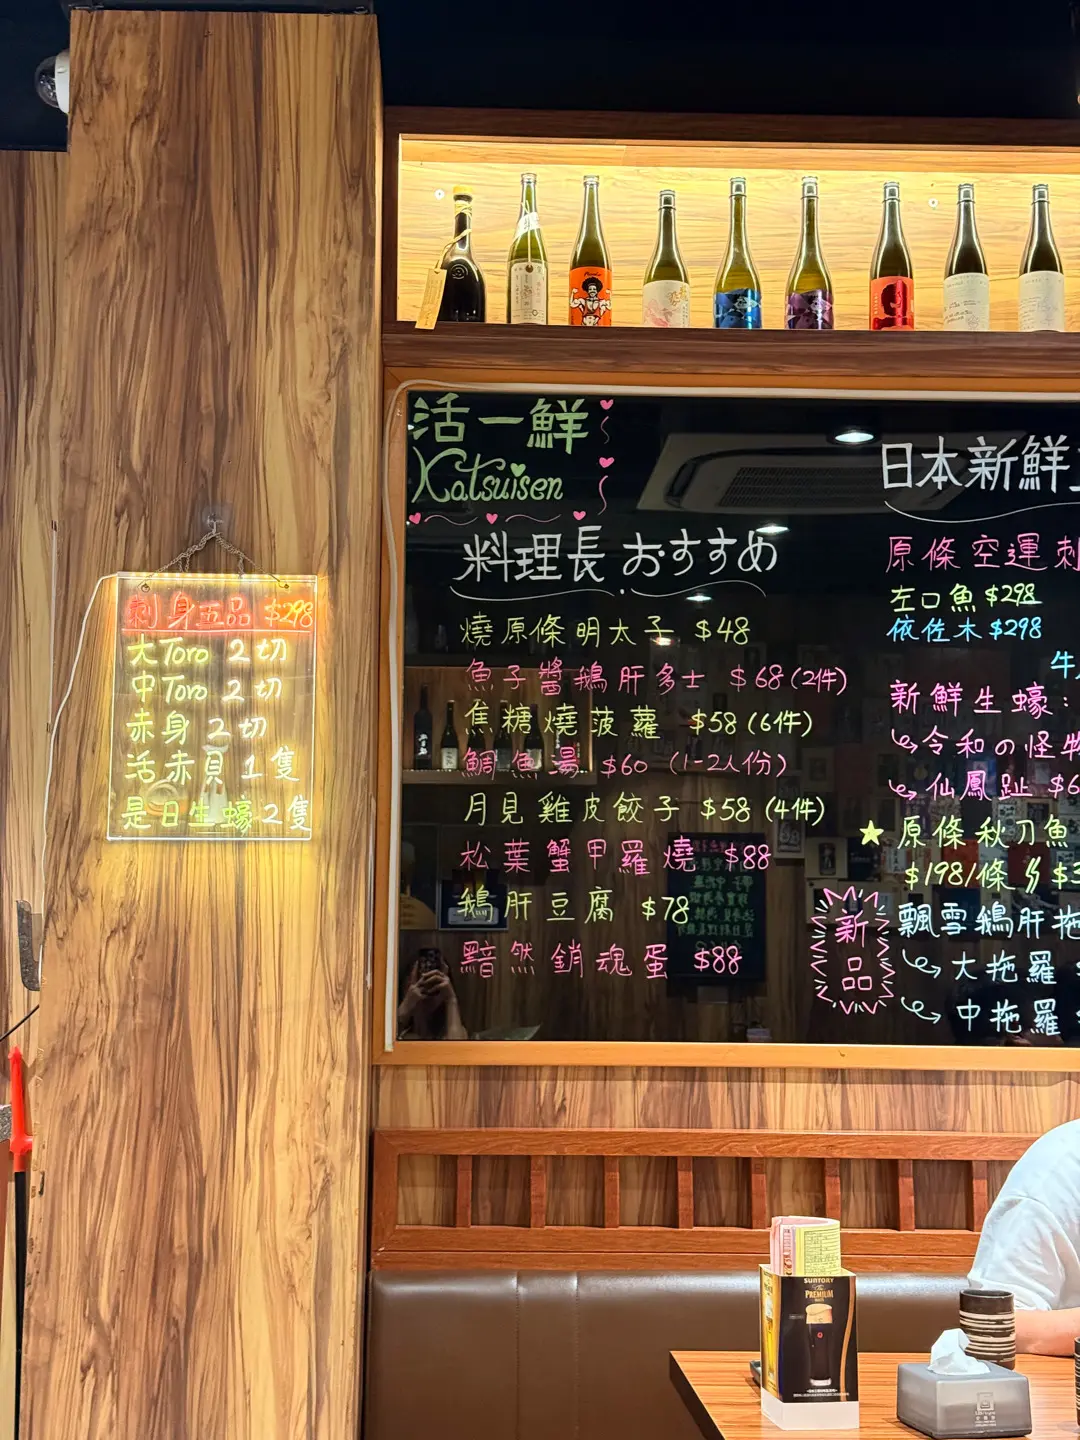 刺身五品 $298
大Toro 2切
中Toro 2切
赤身 2切
活赤貝 1隻
是日生蠔 2隻
活一鮮
Katsuisen
料理長おすすめ
燒原條明太子 $48
魚子醬鵝肝多士 $68(2件)
焦糖燒菠蘿 $58(6件)
鯛魚湯 $60 (1-2人份)
月見雞皮餃子 $58(4件)
松葉蟹甲羅燒 $88
鵝肝豆腐 $78
黯然銷魂蛋 $88
日本新鮮
原條空運刺
左口魚 $298
依佐木 $298
牛
新鮮生蠔:
令和の怪物
仙鳳趾 $6
原條秋刀魚
$198/條 $3
新品
飄雪鵝肝拖
大拖羅
中拖羅
SUNTORY
The
PREMIUM
MALT'S